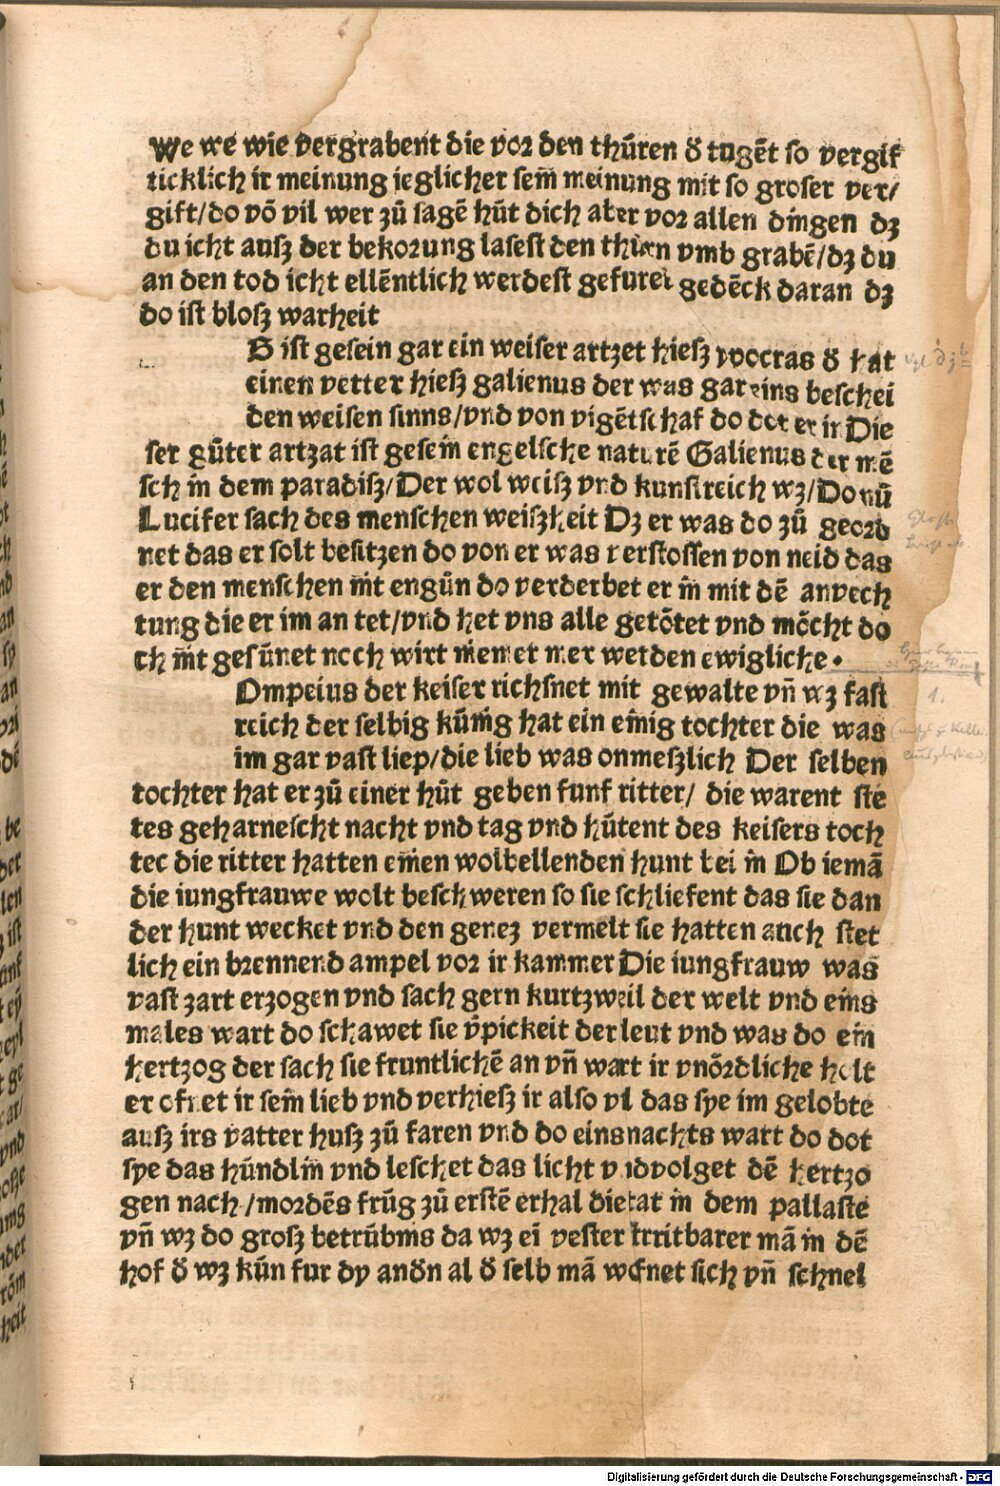 We we wie vergrabent die vor den thúren d̕ tugēt so vergif
ticklich ir meinung ieglicher sein̄ meinung mit so groser ver/
gift/do vō vil wer zů sagē hút dich aber vor allen dingen dz
du icht ausz der bekorung lasest den thirn vmb grabē/dz du
an den tod icht ellēntlich werdest gefuret gedēck daran dz
do ist blosz warheit
S ist gesein gar ein weiser artzet hiesz ypocras d̕ hat
einen vetter hiesz galienus der was gar eins beschei
den weisen sinns/vnd von vigētschaf do dot er in Die
ser gůter artzat ist gesein engelsche naturē Galienus der mē
sch in dem paradisz/Der wol weisz vnd kunstreich wz/Do nū
Lucifer sach des menschen weiszheit Dz er was do zů georb
net das er solt besitzen do von er was verstossen von neid das
er den menschen nit engūn do verderbet er in mit dē anvech
tung die er im an tet/vnd het vns alle getōtet vnd mōcht do
ch nit gesūnet noch wirt niemer mer werden ewigliche.
Ompeius der keiser richsnet mit gewalte vn̄ wz fast
reich der selbig kūnig hat ein einig tochter die was
im gar vast liep/die lieb was onmeszlich Der selben
tochter hat er zů einer hůt geben funf ritter/ die warent ste
tes geharnescht nacht vnd tag vnd hůtent des keisers toch
tec die ritter hatten einen wolbellenden hunt bei in Ob iemā
die iungfrauwe wolt beschweren so sie schliefent das sie dan
der hunt wecket vnd den genez vermelt sie hatten auch stet
lich ein brennend ampel vor ir kammer Die iungfrauw was
vast zart erzogen vnd sach gern kurtzweil der welt vnd eins
males wart do schawet sie v̄pickeit der leut vnd was do ein
hertzog der sach sie fruntlichē an vn̄ wart ir vnōrdliche holt
er ofnet ir sein̄ lieb vnd verhiesz ir also vl das sye im gelobte
ausz irs vatter husz zů faren vnd do einsnachts wart do dot
sye das hūndlin vnd leschet das licht v ıdvolget dē hertzo
gen nach/mordēs frūg zů erstē erhal die tat in dem pallaste
vn̄ wz do grosz betrūbnis da wz ei vester strritbarer mā in dē
hof d̕ wz kūn fur dy andn al d̕ selb mā wefnet sich vn̄ schnel
1.
Digitalisierung gefördert durch die Deutsche Forschungsgemeinschaft - DFG